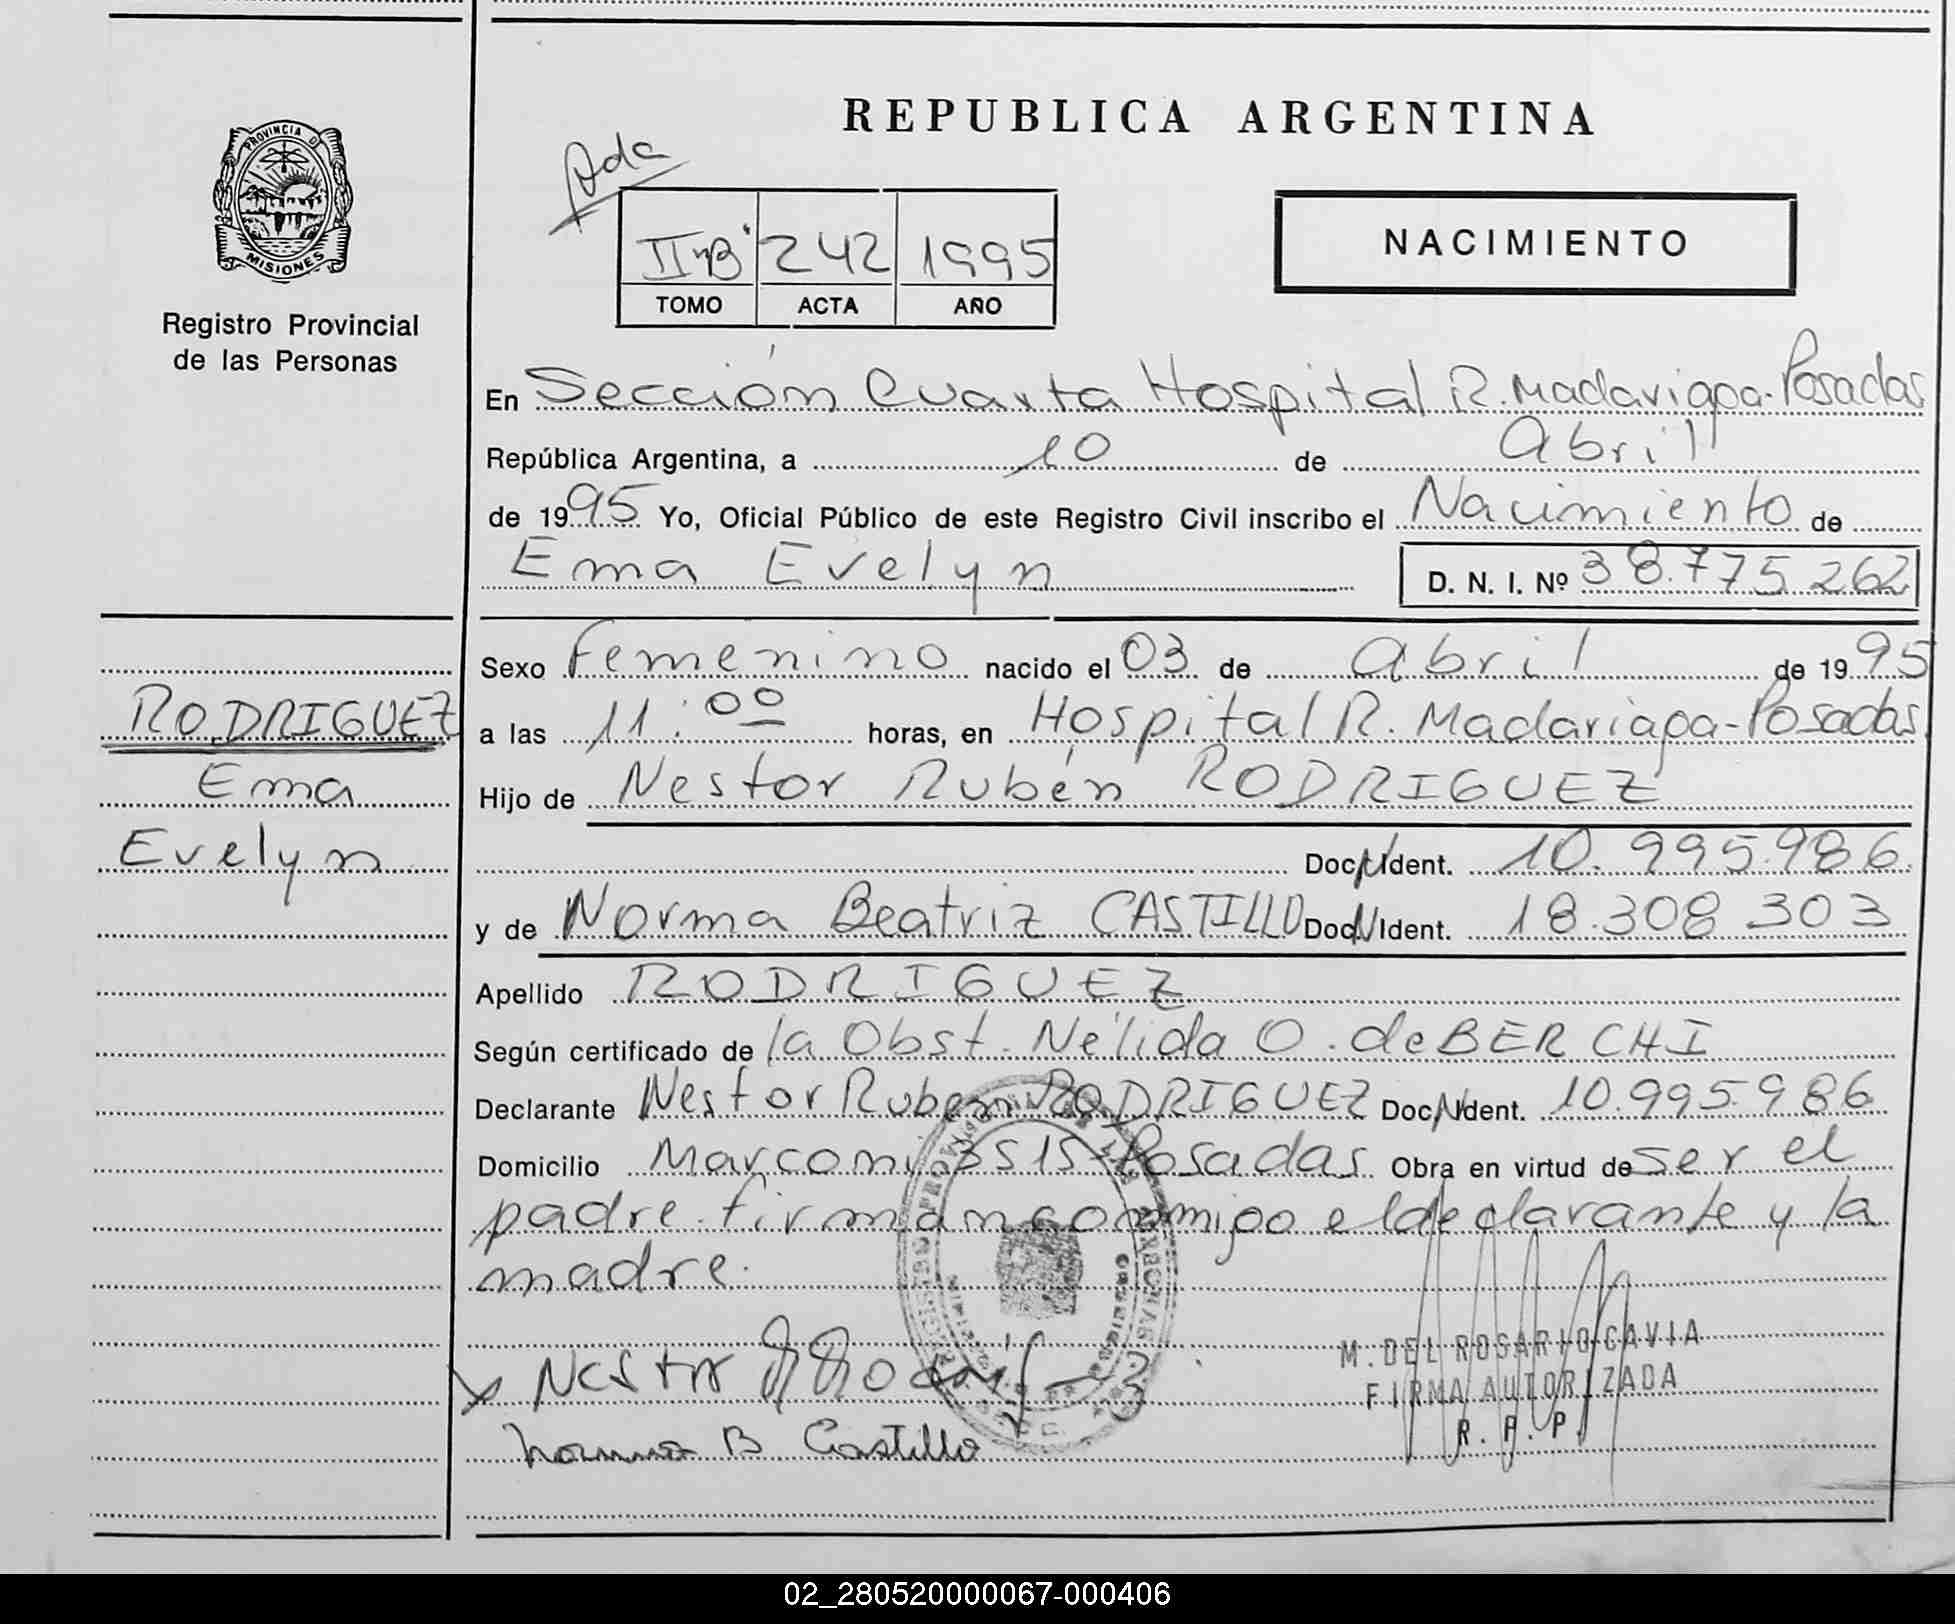 REPUBLICA ARGENTINA
PROVINCIA DE
MISIONES
Registro Provincial
de las Personas
Ada
II "B" 242 1995
TOMO ACTA AÑO
NACIMIENTO
En Sección Cuarta Hospital R. Madariaga-Posadas
República Argentina, a 10 de Abril
de 1995 Yo, Oficial Público de este Registro Civil inscribo el Nacimiento de
Ema Evelyn D. N. I. Nº 38.775.262
Sexo Femenino nacido el 03 de Abril de 1995
a las 11:00 horas, en Hospital R. Madariaga-Posadas
Hijo de Nestor Rubén RODRIGUEZ
Doc. Ident. 10.995.986
y de Norma Beatriz CASTILLO Doc. Ident. 18.308.303
Apellido RODRIGUEZ
Según certificado de la Obst. Nélida O. de BERCHI
Declarante Nestor Ruben RODRIGUEZ Doc. Ident. 10.995.986
Domicilio Marconi 3515-Posadas Obra en virtud de ser el
padre. firman conmigo el declarante y la
madre.
RODRIGUEZ
Ema
Evelyn
Nestor
Norma B Castillo
M. DEL ROSARIO CAVIA
FIRMA AUTORIZADA
R. P. P.
02_280520000067-000406